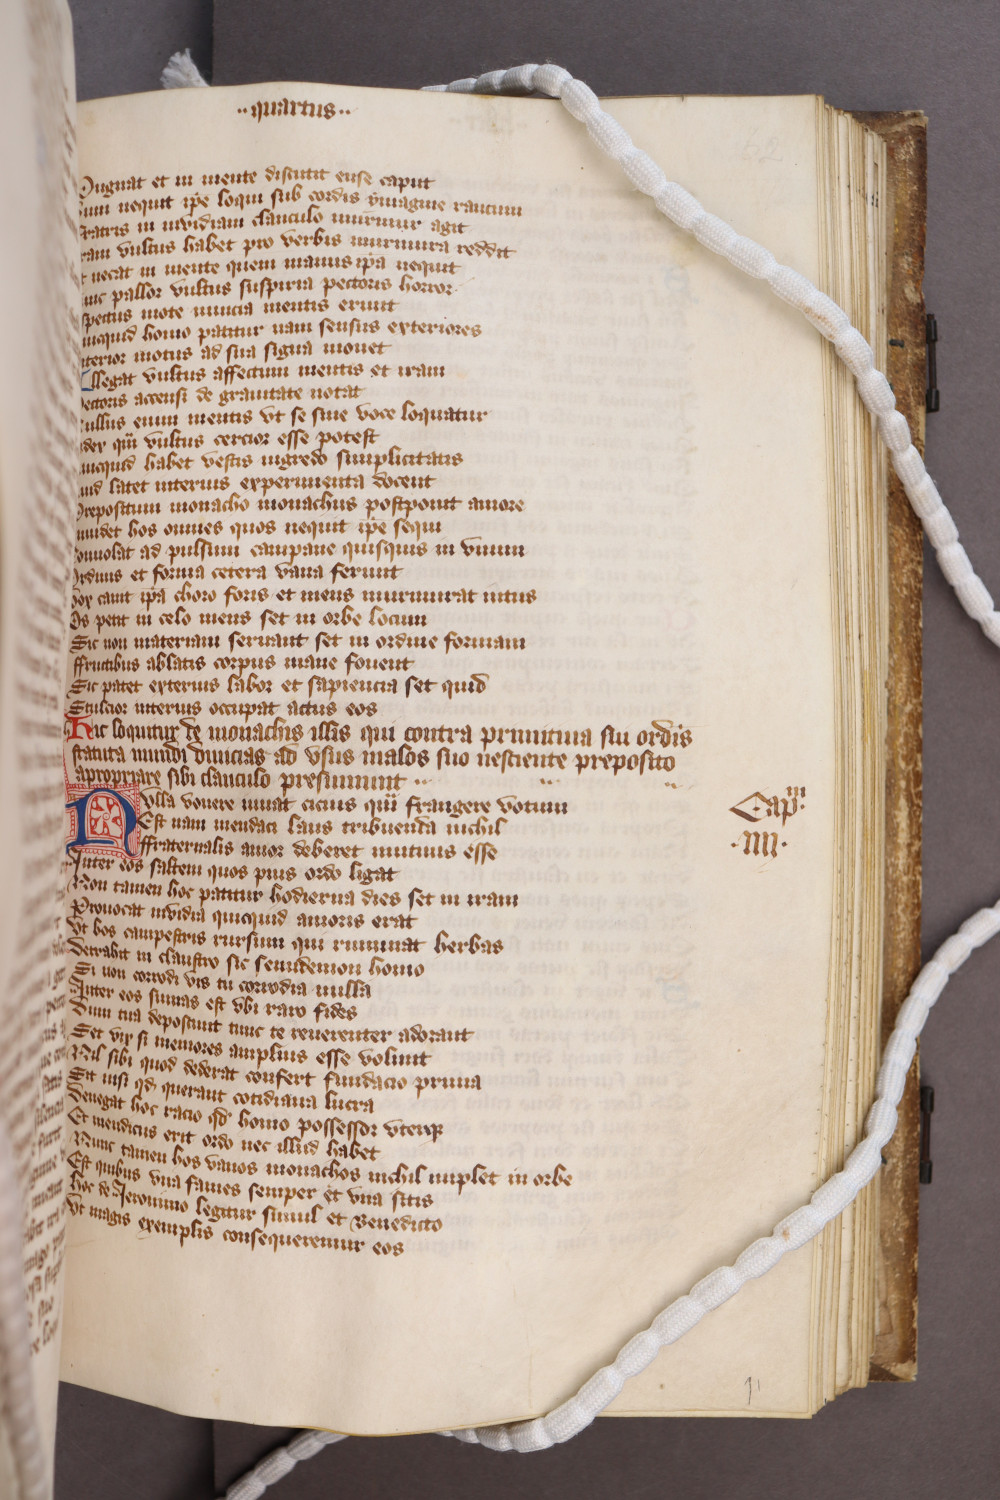 ··quartus··
62
Pugnat et in mente distutit ense caput
nequit ipe loqui sub cordis ymagine rancum
fratris in invidiam clanculo murmur agit
vultus habet pro verbis murmura reddit
necat in mente quem manus ipa nequit
pallor vultus suspiria pectoris horror
mote nuncia mentis erunt
homo patitur nam sensus exteriores
motus ad sua signa monet
Allegat vultus affectum mentis et iram
accensi de gravitate notat
enim mentis vt se sine voce loquatur
qm vultus cercior esse potest
habet vestis nigredo simplicitatis
latet interius experimenta docent
Prepositum monacho monachus postponit amore
hos omnes quos nequit ipe sequi
Convolat ad pulsum campane quisquis in vnum
Ordinis et forma cetera vana ferunt
Vox canit ipa choro foris et mens murmurat intus
Os petit in celo mens set in orbe locum
Sic non materiam servant set in ordine formam
ffructibus ablatis corpus inane fovent
Sic patet exterius labor et sapiencia set quid
Stulcior interius occupat actus eos
Hic loquitur de monachis illis qui contra primitiva sui ordis
statuta mundi divicias ad vsus malos suo nesciente preposito
apropriare sibi clanculo presumunt ··
Nulla vovere iuvat cicius qm frangere votum
Est nam mendaci laus tribuenda nichil
ffraternalis amor deberet mutuus esse
Capm.
·IIII·
Inter eos saltem quos pius ordo ligat
Non tamen hoc patitur hodierna dies set in iram
Provocat invidia quicquid amoris erat
Vt bos campestris rursum qui ruminat herbas
Detrahit in claustro sic semidemon homo
Si non corrodi vis tu corrodia nulla
Inter eos sumas est vbi raro fides
Dum tua deposcunt tunc te reverenter adorant
Set vix si memores amplius esse volunt
Nil sibi quod dederat confert fundacio prima
Sit nisi qd querant cotidiana lucra
Denegat hoc racio qd homo possessor
Et mendicus erit ordo nec illud habet
Nunc tamen hos vanos monachos nichil implet in orbe
Est quibus vna fames semper et vna sitis
Hoc de Jeronimo legitur simul et Benedicto
Vt magis exemplis consequeremur eos